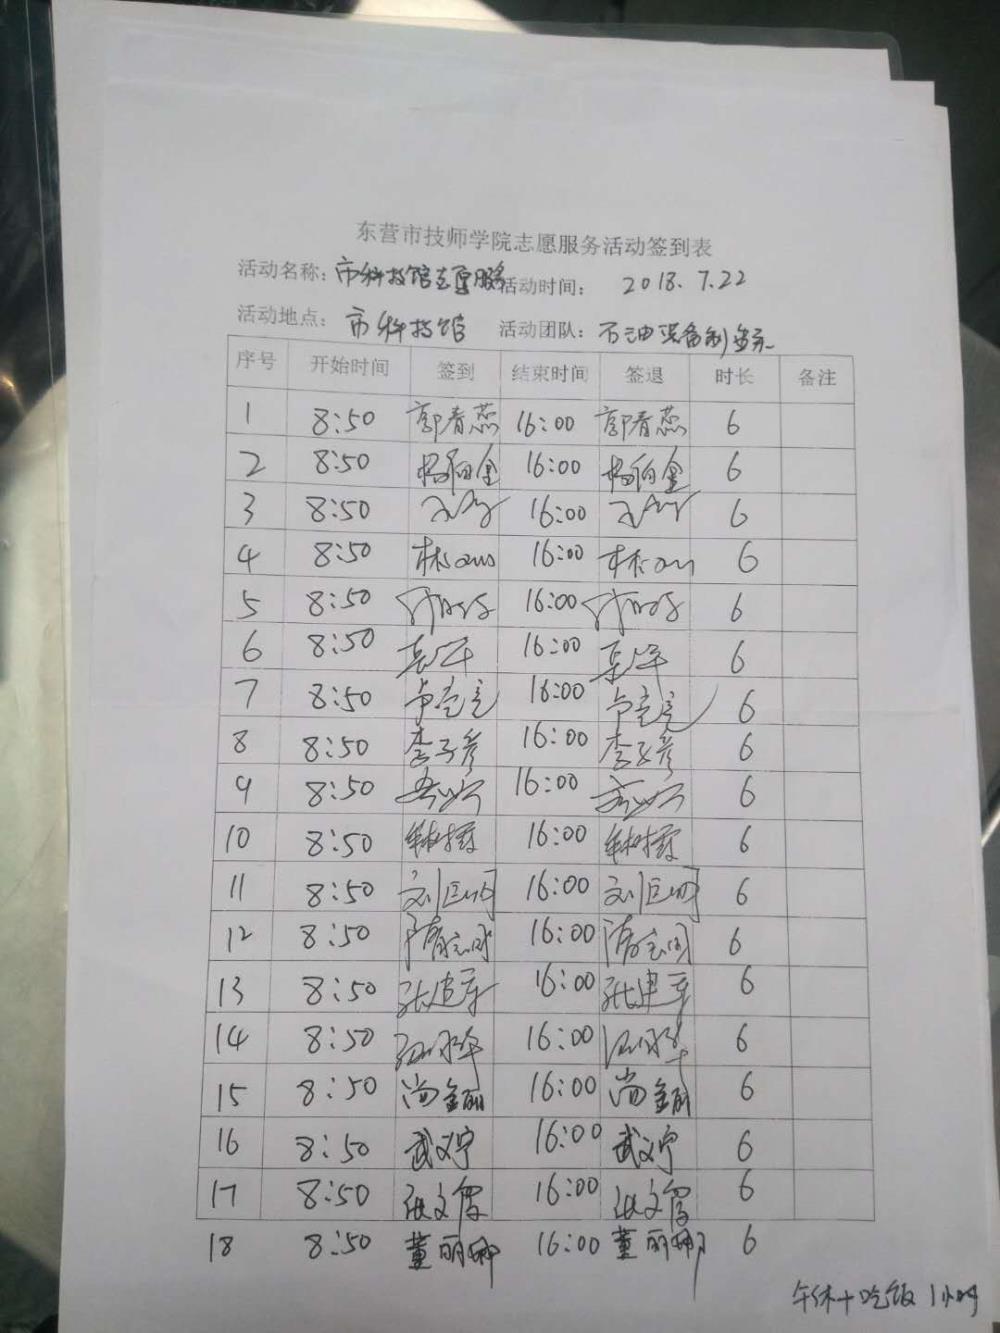 东营市技师学院志愿服务活动签到表
活动名称：市科技馆志愿服务 活动时间： 2018.7.22
活动地点： 市科技馆 活动团队：石油装备制造系
序号 开始时间 签到 结束时间 签退 时长 备注
1 8:50 郭春燕 16:00 郭春燕 6
2 8:50 16:00 6
3 8:50 16:00 6
4 8:50 16:00 6
5 8:50 16:00 6
6 8:50 16:00 6
7 8:50 16:00 6
8 8:50 李子彦 16:00 李子彦 6
9 8:50 16:00 6
10 8:50 16:00 6
11 8:50 16:00 6
12 8:50 16:00 6
13 8:50 张建章 16:00 张建章 6
14 8:50 16:00 6
15 8:50 尚金丽 16:00 尚金丽 6
16 8:50 武文宁 16:00 武文宁 6
17 8:50 16:00 6
18 8:50 董丽娜 16:00 董丽娜 6
午休+吃饭 1小时